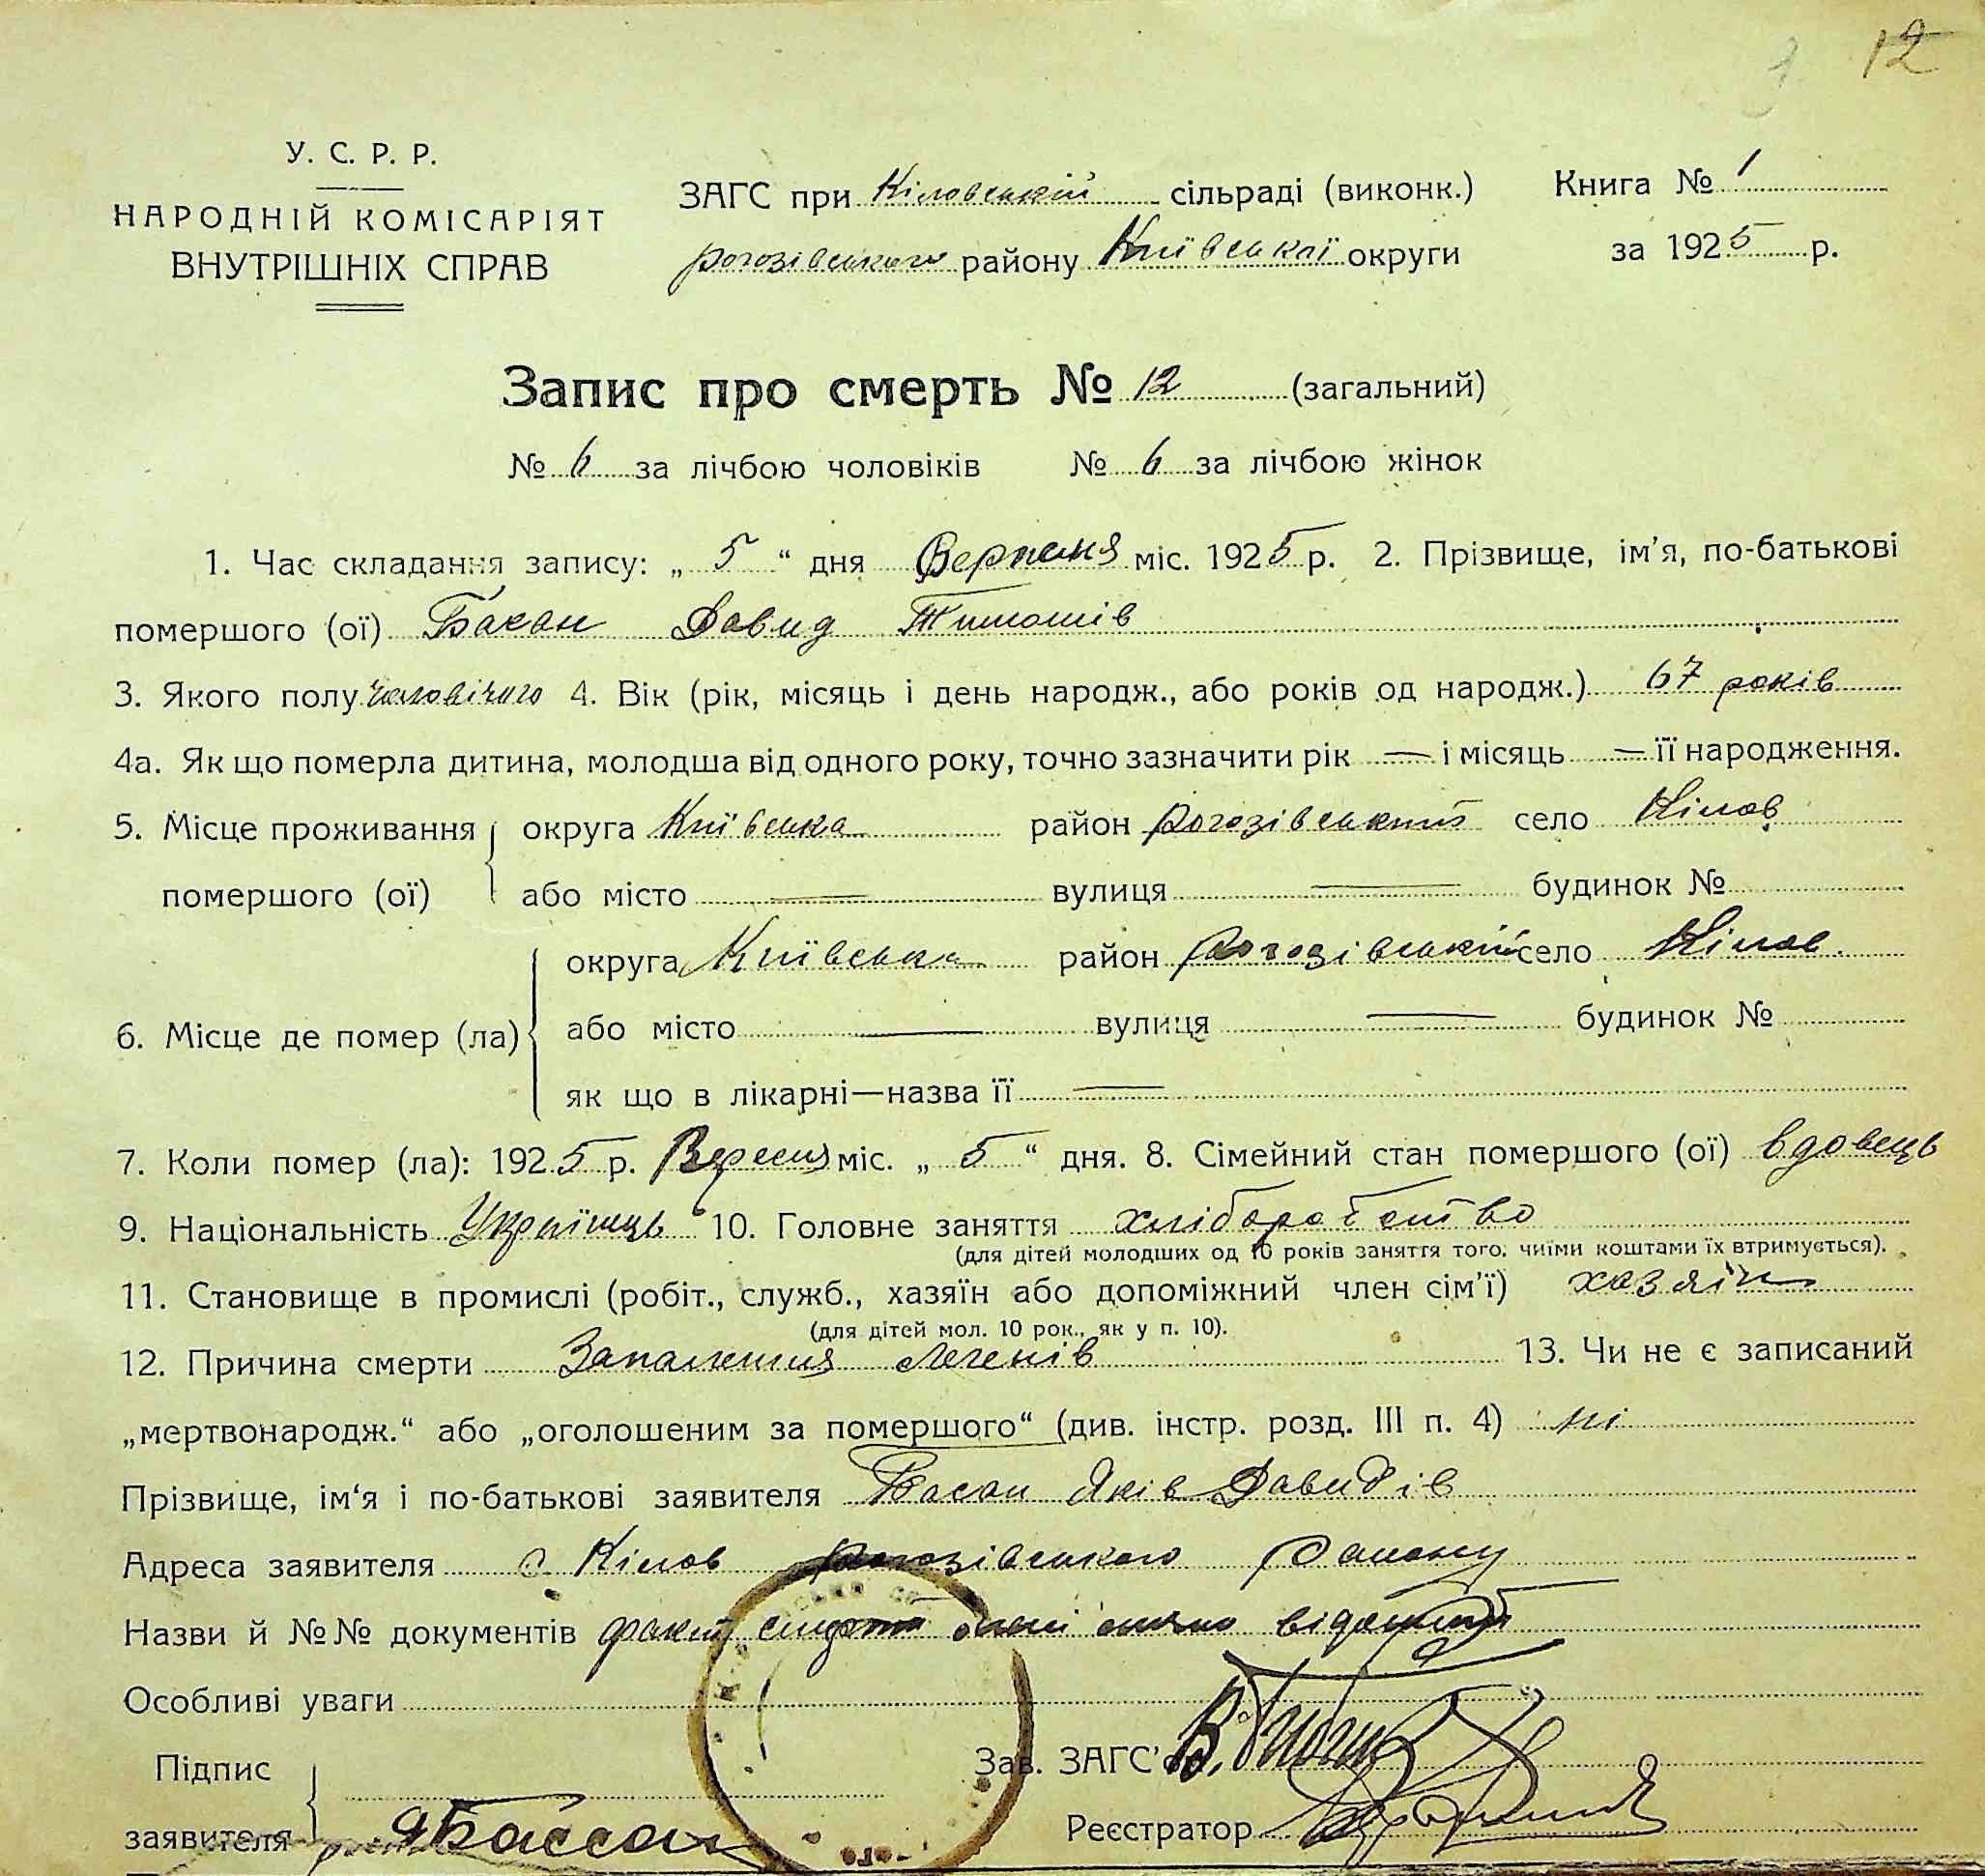 12
У. С. Р. Р.
НАРОДНІЙ КОМІСАРІЯТ
ВНУТРІШНІХ СПРАВ
ЗАГС при Кіловській сільраді (виконк.)
рогозівського району Київської округи
Книга № 1
за 1925 р.
Запис про смерть № 12 (загальний)
№ 6 за лічбою чоловіків № 6 за лічбою жінок
1. Час складання запису: „ 5 “ дня Вересня міс. 1925 р. 2. Прізвище, ім'я, по-батькові
помершого (ої) Басан Давид Тимошів
3. Якого полу чоловічого 4. Вік (рік, місяць і день народж., або років од народж.) 67 років
4а. Як що померла дитина, молодша від одного року, точно зазначити рік — і місяць — її народження.
5. Місце проживання округа Київська район рогозівський село Кілов
помершого (ої) або місто — вулиця — будинок №
округа Київська район рогозівський село Кілов
6. Місце де помер (ла) або місто — вулиця — будинок №
як що в лікарні—назва її —
7. Коли помер (ла): 1925 р. Вересня міс. „ 5 “ дня. 8. Сімейний стан помершого (ої) вдовець
9. Національність Українець 10. Головне заняття хліборобство
(для дітей молодших од 10 років заняття того, чиїми коштами їх втримується).
11. Становище в промислі (робіт., служб., хазяїн або допоміжний член сім'ї) хазяїн
(для дітей мол. 10 рок., як у п. 10).
12. Причина смерти Запалення легенів 13. Чи не є записаний
„мертвонародж.“ або „оголошеним за помершого“ (див. інстр. розд. III п. 4) ні
Прізвище, ім‘я і по-батькові заявителя Басан Яків Давидів
Адреса заявителя с. Кілов рогозівського району
Назви й №№ документів факт смерти
Особливі уваги
Підпис
заявителя ЯБассан
Зав. ЗАГС'ом
Реєстратор